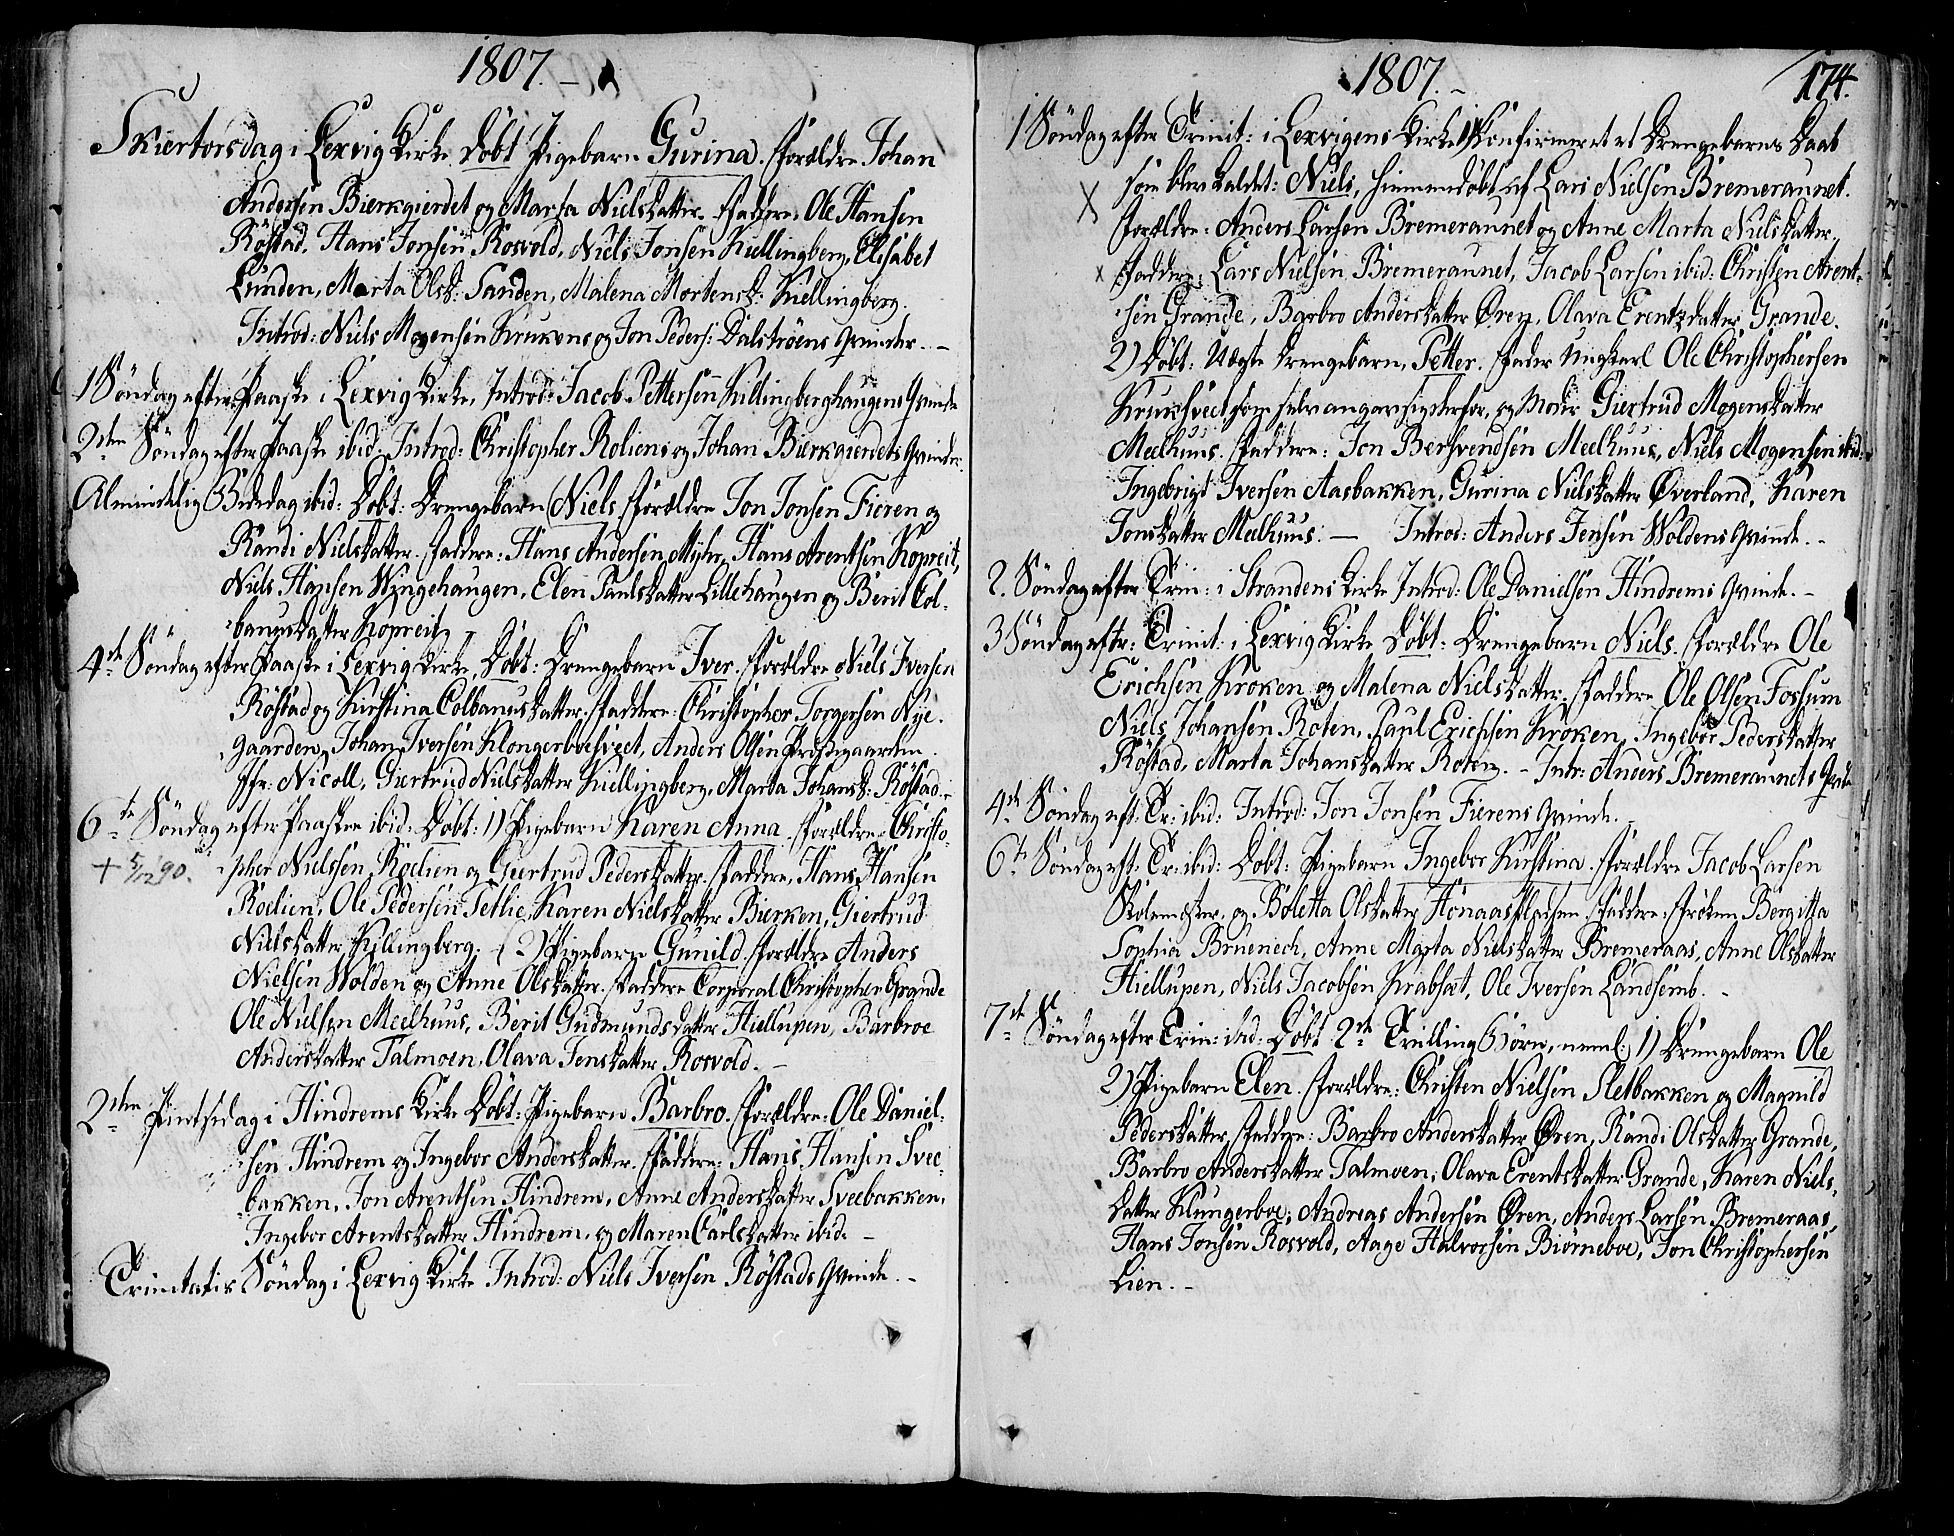 1807.
Skiertorsdag i Lexvig Kirke Döbt Pigebarn Gurina. Forældre Johan
Andersen Bierkgierdet og Marta Nielsdatter. Faddere: Ole Hansen
Röstad, Hans Jonsen Rosvold, Niels Jonsen Kiellingberg, Elisabet
Lunden, Marta Olsd: Sanden, Malena Mortensd: Kiellingberg.
Introd: Niels Mogensen Krukens og Jon Peders: Dalströens Qvinder. –
1 Söndag efter Paaske i Lexvig Kirke, Introd: Jacob Pettersen Killingberghaugens Qvinde
2den Söndag efter Paaske ibid: Introd: Christopher Roliens og Johan Bierkgierdets Qvinder.
Almindelig Bededag ibid: Döbt: Drengebarn Niels. Forældre Jon Jonsen Fieren og
Randi Nielsdatter. Faddere: Hans Andersen Myhr, Hans Arentsen Kopreit,
Niels Hansen Wyngehaugen, Elen Paulsdatter Lillehaugen og Berit Col-
banusdatter Kopreit.
4de Söndag efter Paaske i Lexvig Kirke, Döbt: Drengebarn Iver. Forældre Niels Iversen
Röstad og Kirstina Colbanusdatter. Faddere: Christopher Torgersen Nye-
gaarden, Johan Iversen Klongerboesveet, Anders Olsen Præstegaarden.
Ffr: Nicoll, Giertrud Nielsdatter Kiellingberg, Marta Johansd: Röstad. –
6te Söndag efter Paaske ibid: Döbt: 1) Pigebarn Karen Anna. Forældre: Christo-
+ 5/12 90.
pher Nielssen Roelien og Giertrud Pedersdatter. Faddere, Hans Hansen
Roelien, Ole Pedersen Tetlie, Karen Nielsdatter Bierken, Giertrud
Nielsdatter Kyllingberg. 2) Pigebarn Gunild. Forældre Anders
Nielsen Wolden og Anne Olsdatter. Faddere Corporal Christopher Grande
Ole Nielsen Meelhuus, Berit Gudmundsdatter Hiellupen, Barbroe
Andersdatter Talmoen, Olava Jensdatter Rosvold. –
2den Pintsedag i Hindrems Kirke Döbt: Pigebarn Barbro. Forældre: Ole Daniel-
sen Hindrem og Ingebor Andersdatter. Faddere: Hans Hansen Svee-
bakken, Jon Arentsen Hindrem, Anne Andersdatter Sveebakken,
Ingebor Arentsdatter Hindrem, og Maren Carlsdatter ibid. –
Trinitatis Söndag i Lexvig Kirke Introd: Niels Iversen Röstads Qvinde. –
1807. –
174.
1 Söndag efter Trinit: i Lexvigens Kirke 1) Konfirmeret et Drengebarns Daab
som blev kaldet: Niels, hiemmedöbt af Lars Nielsen Bremeraunet.
Forældre: Anders Larsen Bremeraunet og Anne Marta Nielsdatter,
Faddere: Lars Nielsen Bremeraunet, Jacob Larsen ibid: Christen Arent-
sen Grande, Barbro Andersdatter Øren, Olava Erentzdatter Grande.
2) Döbt: Uægte Drengebarn, Petter. Fader Ungkarl Ole Christophersen
Kruksveet som selv angav sig derfor, og Moder Giertrud Mogensdatter
Meelhuus. Faddere: Jon Bersvendsen Meelhuus, Niels Mogensen ibid:
Ingebrigt Iversen Aasbakken, Gurina Nielsdatter Øverland, Karen
Jonsdatter Meelhuus. — Introd: Anders Jensen Woldens Qvinde. –
2. Söndag efter Trin: i Strandens Kirke Introd: Ole Danielsen Hindrems Qvinde. –
3 Söndag eftr: Trinit: i Lexvig Kirke Döbt: Drengebarn Niels. Forældre Ole
Erichsen Kroken og Malena Nielsdatter, Faddere Ole Olsen Fossum
Niels Johansen Roten, Paul Erichsen Kroken, Ingebor Pedersdatter
Röstad, Marta Johansdatter Roten. – Intr: Anders Bremeraunets Qvinde
4de Söndag eft. Tr: ibid: Introd: Jon Jonsen Fierens Qvinde. –
6te Söndag eft. Tr: ibid: Döbt: Pigebarn Ingebor Kirstina. Forældre Jacob Larsen
Skolemester, og Boletta Olsdatter Hönaas. Faddere: Fröken Bergitta
Sophia Bruenech, Anne Marta Nielsdatter Bremeraas, Anne Olsdatter
Hiellupen, Niels Jacobsen Krabsæt, Ole Iversen Landsemb. –
7de Söndag efter Trin: ibid: Döbt 2de Tvilling Börn, neml: 1) Drengebarn Ole
2) Pigebarn Elen. Forældre: Christen Nielsen Sletbakken og Magnild
Pedersdatter, Faddere: Barbro Andersdatter Øren, Randi Olsdatter Grande,
Barbro Andersdatter Talmoen, Olava Erentsdatter Grande, Karen Niels-
datter Klungerboe, Andreas Andersen Øren, Anders Larsen Bremeraas,
Hans Jonsen Rosvold, Aage Halvorsen Biörneboe, Jon Christophersen
Lien. –